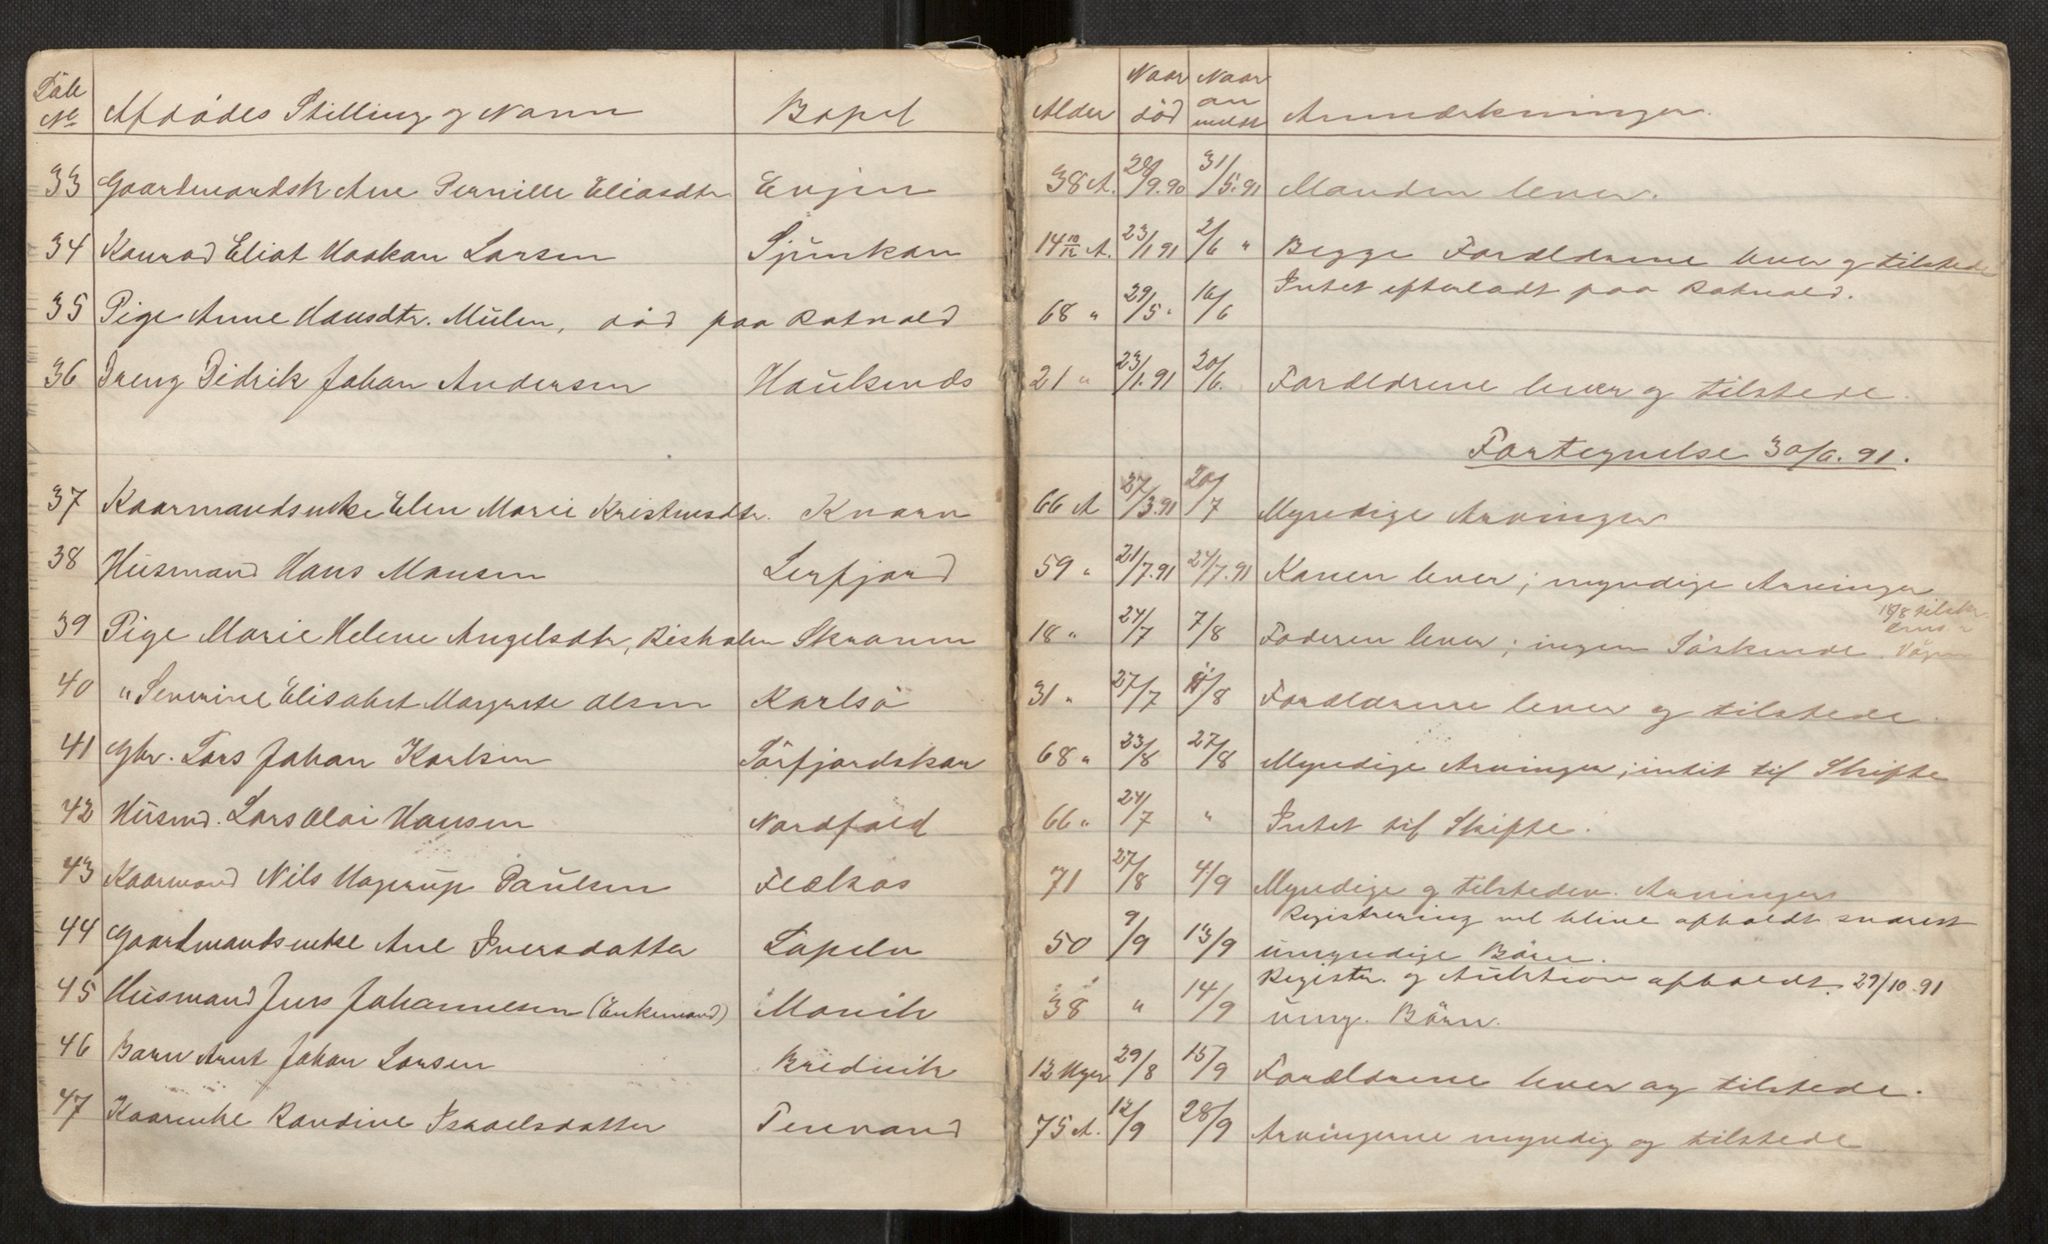 Löb. No Afdödes Stilling og Navn Bopel Alder Naar död Naar anmeldt Anmærkninger.
33 Gaardmandsk Ane Pernille Eliasdtr Evjen 38 A. 28/9.90 31/5.91 Manden lever.
34 Konrad Eliot Haakon Larsen Sjunkan 14 10/12 A. 23/1 91 2/6 " Begge Forældrene lever og tilstede
35 Pige Anne Hansdtr. Mulen, död paa Rotvold 68 " 29/5 " 16/6 Intet efterladt paa Rotvold.
36 Dreng Didrik Johan Andersen Haukenæs 21 " 23/1.91 20/6. Forældrene lever og tilstede.
Fortegnelse 30/6.91.
37 Kaarmandsenke Elen Marie Kristensdtr. Kvarv 66 A 27/3.91 20/7 Myndige Arvinger
38 Husmand Hans Monsen Lerfjord 59 " 21/7.91 24/7.91 Konen lever; myndige Arvinger
39 Pige Marie Helene Angelsdtr, Skranm 18 " 24/7 7/8 Faderen lever; ingen Söskende
40 " Severine Elisabet Margrete Olsen Karlsö 31 " 27/7 /8 Forældrene lever og tilstede.
41 Gbr. Lars Johan Karlsen Törfjordskar 68 " 23/8 27/8 Myndige Arvinger; intet til Skifte
42 Husmd. Lars Olai Hansen Nordfold 66 " 24/7 " Intet til Skifte.
43 Kaarmand Nils Hagerup Paulsen Fleskos 71 27/8 4/9 Myndige og tilstedev. Arvinger
44 Gaardmandsenke Ane Iversdatter Löpeln 50 9/9 13/9 Registrering vil blive afholdt snarest
umyndige Börn.
45 Husmand Jens Johannesen (Enkemand) Movik 38 " 14/9 Registr. og Auktion afholdt. 29/10.91
umy. Börn.
46 Barn Arnt Johan Larsen Bredvik 12 Uger 29/8 15/9 Forældrene lever og tilstede.
47 Kaarenke Randine Israelsdatter Tenvand 75 A. 12/9 28/9 Arvingerne myndig og tilstede